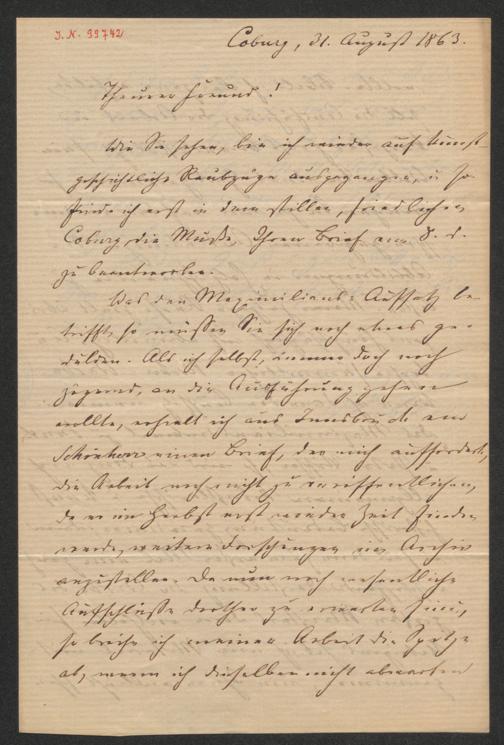 J. N. 99742
Coburg, 31. August 1863.
Theurer Freund!
Wie Sie sehen, bin ich wieder auf kunst
geschichtliche Raubzüge ausgegangen, u. so
finde ich erst in dem stillen, friedlichen
Coburg die Muße, Ihren Brief vom 8. d.
zu beantworten.
Was den Maximilians-Aufsatz be
trifft, so müssen Sie sich noch etwas ge-
dulden. Als ich selbst, immer doch noch
zögernd, an die Ausführung gehen
wollte, erhalte ich aus Innsbruck von
Schönherr einen Brief, der mich auffordert,
die Arbeit noch nicht zu veröffentlichen,
da er im Herbst erst wieder Zeit finden
werde, weitere Forschungen im Archiv
anzustellen. Da nun noch wesentliche
Aufschlüsse dorther zu erwarten sind,
so breche ich meiner Arbeit die Spitze
ab, wenn ich dieselben nicht abwarten